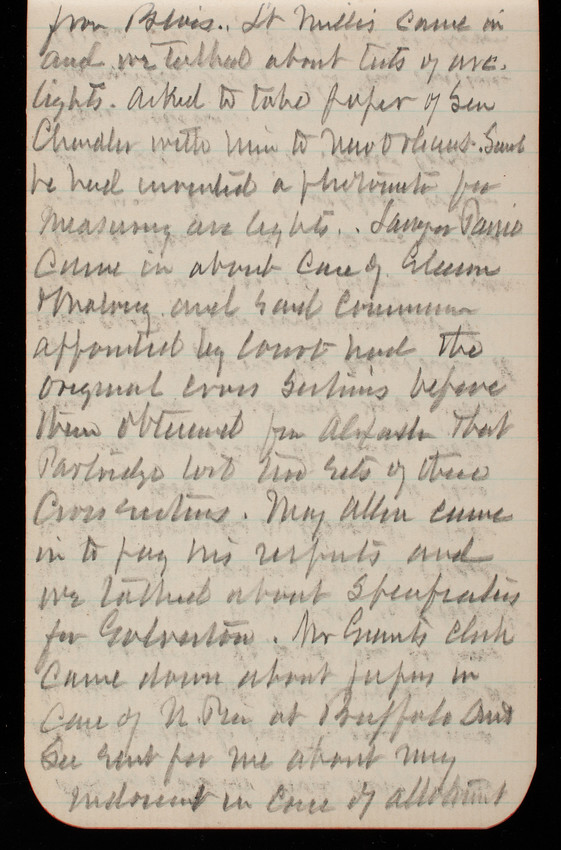 from Lt Millis came in
and we talked about tests of arc.
lights. Asked to take paper of Gen
with him to New Orleans. Said
he had invented a photometer for
measuring arc lights.. Lawyer
came in about case of Gleason
and said commission
appointed by court had the
original cross sections before
them obtained from that
Partridge lost two sets of these
Cross sections. Maj Allen came
in to pay his respects and
we talked about specifications
for Galveston. Mr Grants clerk
came down about papers in
case of N. Pier at Buffalo and
Sec sent for me about my
indorsement in case of allotment